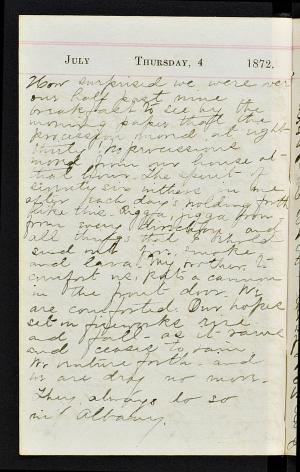 July Thursday, 4 1872.
How surprised we were over
our half past nine
breakfast to see by the
morning's paper that the
procession moved at eight
thirty! No processions
moved from our house at
that hour. The spirit of
seventy six withers in me
after each day's holding forth
like this. Bigga, jigga from
from every direction and
all things that I should
send out for, smoke
and lava! My brother, to
comfort us, puts a cannon
in the front door. We
are comforted. Our hopes
set on fireworks rise
and fall - as it rains
and ceases to rain
We venture forth - and
us are dry no more.
They always do so
in Albany.